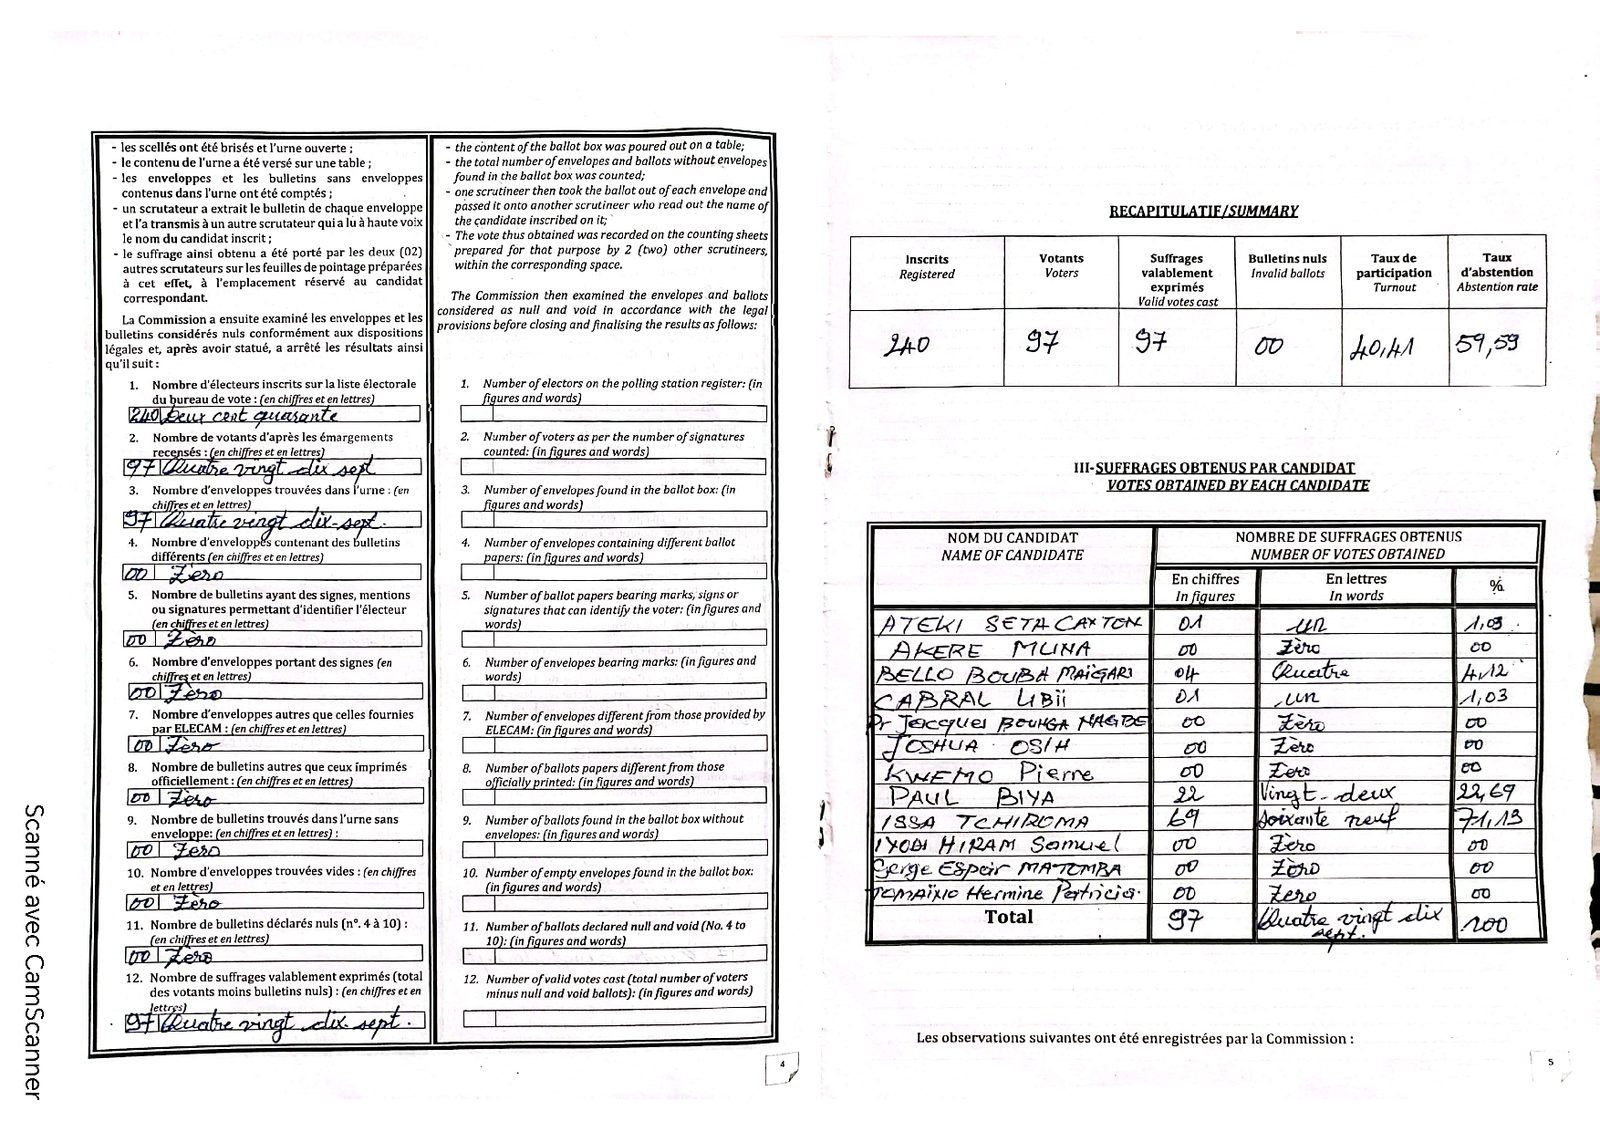 - les scellés ont été brisés et l'urne ouverte ;
- le contenu de l'urne a été versé sur une table ;
- les enveloppes et les bulletins sans enveloppes
contenus dans l'urne ont été comptés ;
- un scrutateur a extrait le bulletin de chaque enveloppe
et l'a transmis à un autre scrutateur qui a lu à haute voix
le nom du candidat inscrit ;
- le suffrage ainsi obtenu a été porté par les deux (02)
autres scrutateurs sur les feuilles de pointage préparées
à cet effet, à l'emplacement réservé au candidat
correspondant.
La Commission a ensuite examiné les enveloppes et les
bulletins considérés nuls conformément aux dispositions
légales et, après avoir statué, a arrêté les résultats ainsi
qu'il suit :
1. Nombre d'électeurs inscrits sur la liste électorale
du bureau de vote : (en chiffres et en lettres)
240 Deux cent quarante
2. Nombre de votants d'après les émargements
recensés : (en chiffres et en lettres)
97 Quatre vingt dix sept
3. Nombre d'enveloppes trouvées dans l'urne : (en
chiffres et en lettres)
97 Quatre vingt dix-sept.
4. Nombre d'enveloppes contenant des bulletins
différents (en chiffres et en lettres)
00 Zèro
5. Nombre de bulletins ayant des signes, mentions
ou signatures permettant d'identifier l'électeur
(en chiffres et en lettres)
00 Zèro
6. Nombre d'enveloppes portant des signes (en
chiffres et en lettres)
00 Zèro
7. Nombre d'enveloppes autres que celles fournies
par ELECAM : (en chiffres et en lettres)
00 Zèro
8. Nombre de bulletins autres que ceux imprimés
officiellement : (en chiffres et en lettres)
00 Zèro
9. Nombre de bulletins trouvés dans l'urne sans
enveloppe: (en chiffres et en lettres) :
00 Zero
10. Nombre d'enveloppes trouvées vides : (en chiffres
et en lettres)
00 Zèro
11. Nombre de bulletins déclarés nuls (n°. 4 à 10) :
(en chiffres et en lettres)
00 Zèro
12. Nombre de suffrages valablement exprimés (total
des votants moins bulletins nuls) : (en chiffres et en
lettres)
97 Quatre vingt dix-sept.
- the content of the ballot box was poured out on a table;
- the total number of envelopes and ballots without envelopes
found in the ballot box was counted;
- one scrutineer then took the ballot out of each envelope and
passed it onto another scrutineer who read out the name of
the candidate inscribed on it;
- The vote thus obtained was recorded on the counting sheets
prepared for that purpose by 2 (two) other scrutineers,
within the corresponding space.
The Commission then examined the envelopes and ballots
considered as null and void in accordance with the legal
provisions before closing and finalising the results as follows:
1. Number of electors on the polling station register: (in
figures and words)
2. Number of voters as per the number of signatures
counted: (in figures and words)
3. Number of envelopes found in the ballot box: (in
figures and words)
4. Number of envelopes containing different ballot
papers: (in figures and words)
5. Number of ballot papers bearing marks, signs or
signatures that can identify the voter: (in figures and
words)
6. Number of envelopes bearing marks: (in figures and
words)
7. Number of envelopes different from those provided by
ELECAM: (in figures and words)
8. Number of ballots papers different from those
officially printed: (in figures and words)
9. Number of ballots found in the ballot box without
envelopes: (in figures and words)
10. Number of empty envelopes found in the ballot box:
(in figures and words)
11. Number of ballots declared null and void (No. 4 to
10): (in figures and words)
12. Number of valid votes cast (total number of voters
minus null and void ballots): (in figures and words)
4
RECAPITULATIF/SUMMARY
Inscrits Registered Votants Voters Suffrages valablement exprimés Valid votes cast Bulletins nuls Invalid ballots Taux de participation Turnout Taux d'abstention Abstention rate
240 97 97 00 40,41 59,59
III-SUFFRAGES OBTENUS PAR CANDIDAT
VOTES OBTAINED BY EACH CANDIDATE
NOM DU CANDIDAT NOMBRE DE SUFFRAGES OBTENUS
NAME OF CANDIDATE NUMBER OF VOTES OBTAINED
En chiffres En lettres %
In figures In words
ATEKI SETA CAXTON 01 un 1,03
AKERE MUNA 00 Zèro 00
BELLO BOUBA MAÏGARI 04 Quatre 4,12
CABRAL LIBii 01 un 1,03
Pr Jacques BOUHGA HAGBE 00 Zèro 00
JOSHUA OSIH 00 Zèro 00
KWEMO Pierre 00 Zero 00
PAUL BIYA 22 Vingt-deux 22,69
ISSA TCHIROMA 69 Soixante neuf 71,13
IYODI HIRAM Samuel 00 Zèro 00
Serge Espoir MATOMBA 00 Zèro 00
TOMAÏNO Hermine Patricia 00 Zero 00
Total 97 Quatre vingt dix sept. 100
Les observations suivantes ont été enregistrées par la Commission :
5
Scanné avec CamScanner